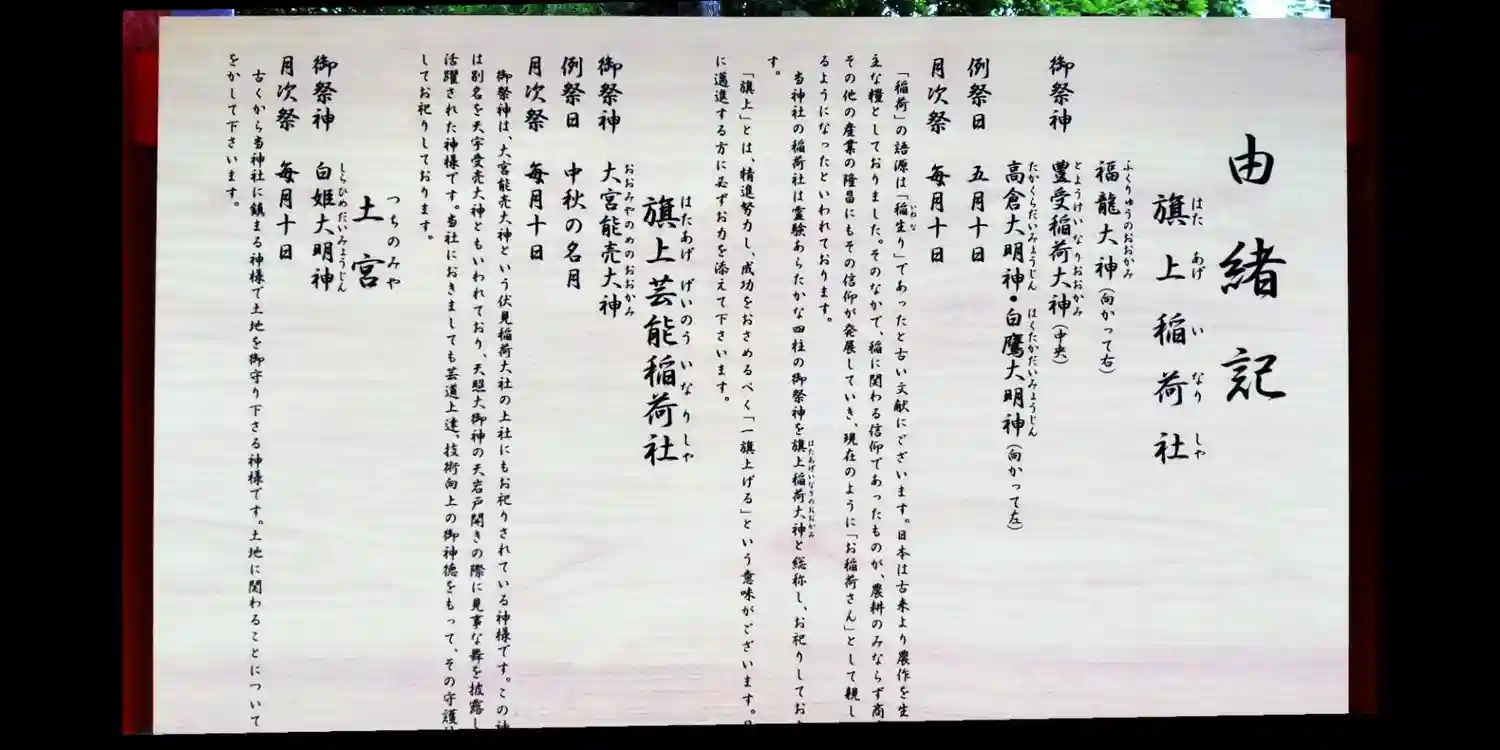 由緒記
旗上稲荷社
はた あげ い なり しゃ
福龍大神(向かって右)
ふくりゅうのおおかみ
御祭神 豊受稲荷大神(中央)
とようけいなりおおかみ
高倉大明神・白鷹大明神(向かって左)
たかくらだいみょうじん はくたかだいみょうじん
例祭日 五月十日
月次祭 毎月十日
「稲荷」の語源は「稲生り」であったと古い文献にございます。日本は古来より農作を生
いねな
主な糧としておりました。そのなかで、稲に関わる信仰であったものが、農耕のみならず商
その他の産業の隆昌にもその信仰が発展していき、現在のように「お稲荷さん」として親し
るようになったといわれております。
当神社の稲荷社は霊験あらたかな四柱の御祭神を旗上稲荷大神と総称し、お祀りしてお
はたあげいなりのおおかみ
す。
「旗上」とは、精進努力し、成功をおさめるべく「一旗上げる」という意味がございます。
に邁進する方に必ずお力を添えて下さいます。
旗上芸能稲荷社
はたあげ げいのう いなりしゃ
御祭神 大宮能売大神
おおみやのめのおおかみ
例祭日 中秋の名月
月次祭 毎月十日
御祭神は、大宮能売大神という伏見稲荷大社の上社にもお祀りされている神様です。この神
は別名を天宇受売大神ともいわれており、天照大御神の天岩戸開きの際に見事な舞を披露し
活躍された神様です。当社におきましても芸道上達、技術向上の御神徳をもって、その守護
してお祀りしております。
土宮
つちのみや
御祭神 白姫大明神
しらひめだいみょうじん
月次祭 毎月十日
古くから当神社に鎮まる神様で土地を御守り下さる神様です。土地に関わることについて
をかして下さいます。